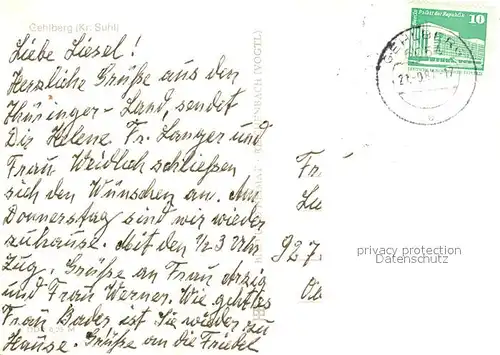 Gehlberg (Kr. Suhl)
Liebe Liesel!
Herzliche Grüße aus dem
Thüringer-Land, sendet
Dir Helene. Fr. Langer und
Frau Weidlich schließen
sich den Wünschen an. Am
Donnerstag sind wir wieder
zuhause. Mit den ½3 Uhr
Zug. Grüße an Frau
und Frau Werner. Wie geht es
Frau Bader, ist Sie wieder zu
Hause. Grüße an die Friedel
10
Palast der Republik
GEHLBERG
Fr
Lu
927
privacy protection
Datenschutz